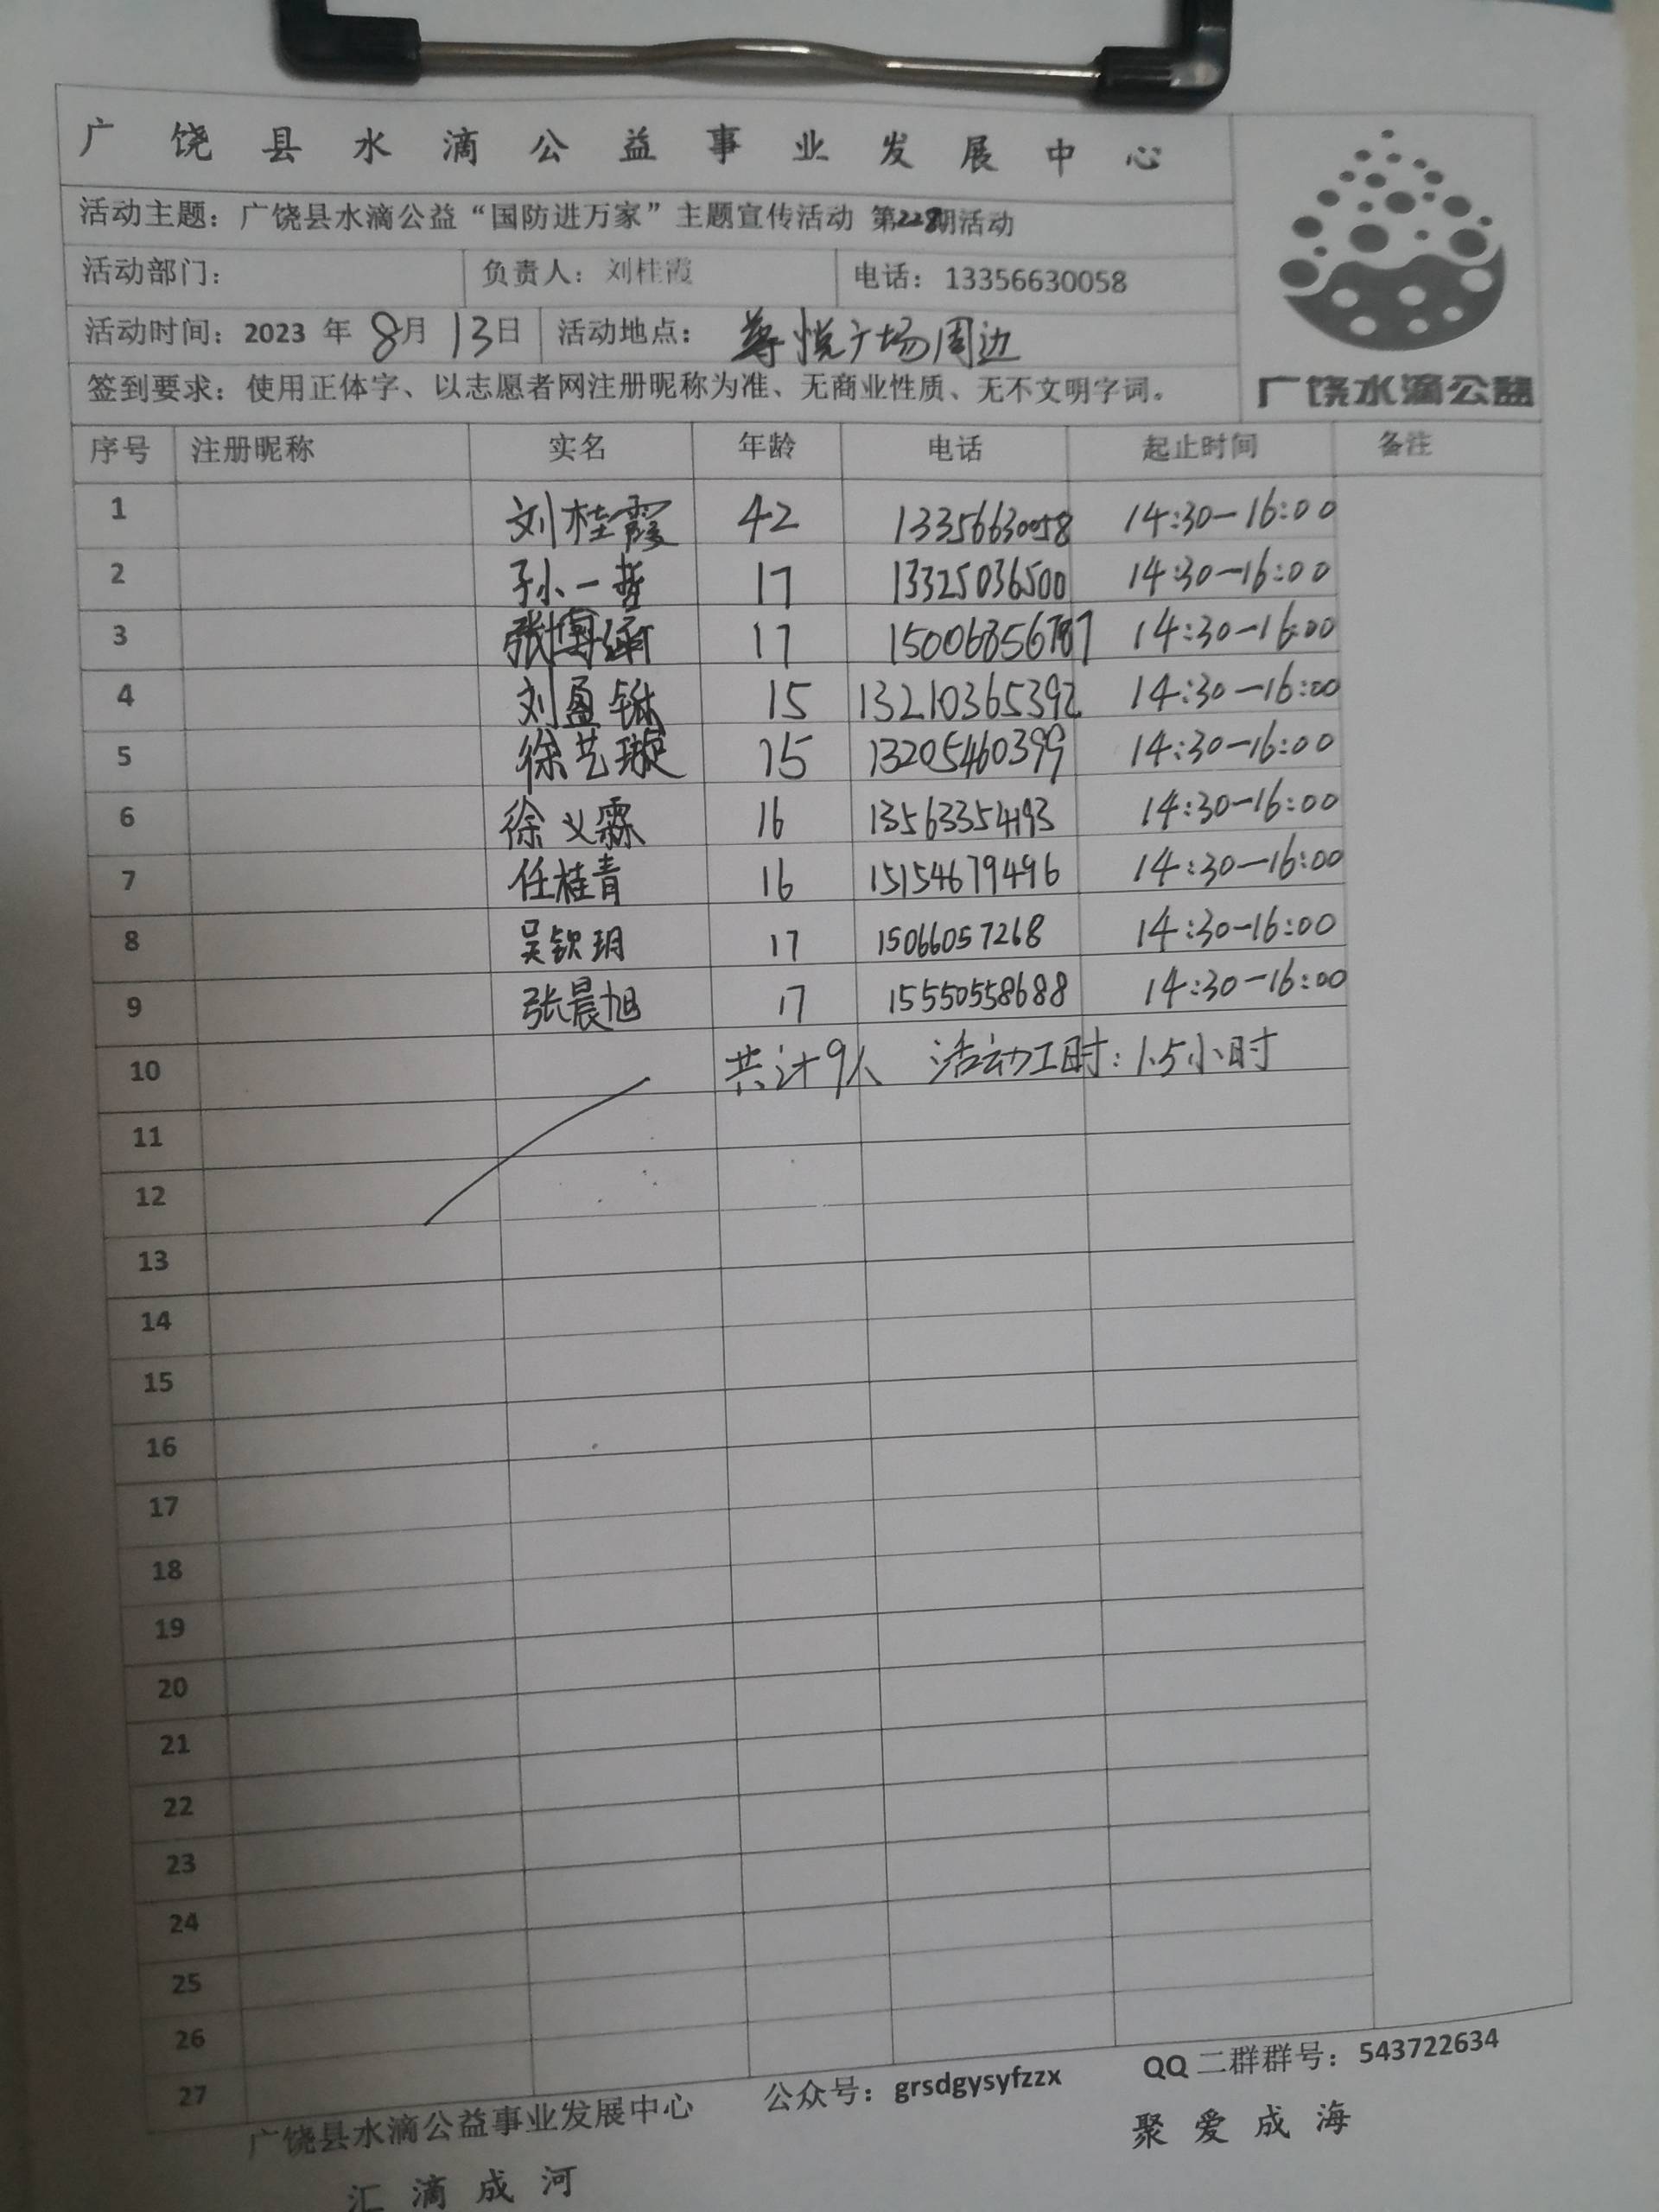 广饶县水滴公益事业发展中心
活动主题：广饶县水滴公益“国防进万家”主题宣传活动 第228期活动
活动部门： 负责人：刘桂霞 电话：13356630058
活动时间：2023 年 8月 13日 活动地点： 尊悦广场周边
签到要求：使用正体字、以志愿者网注册昵称为准、无商业性质、无不文明字词。
广饶水滴公益
序号 注册昵称 实名 年龄 电话 起止时间 备注
1 刘桂霞 42 13356630058 14:30-16:00
2 孙一哲 17 13325036500 14:30-16:00
3 张博涵 17 14:30-16:00
4 刘盈 15 13210365392 14:30-16:00
5 徐艺璇 15 13205460399 14:30-16:00
6 徐义霖 16 13563354193 14:30-16:00
7 任桂青 16 15154679496 14:30-16:00
8 吴钦玥 17 15066057268 14:30-16:00
9 张晨旭 17 15550558688 14:30-16:00
10 共计9人 活动工时：1.5小时
11
12
13
14
15
16
17
18
19
20
21
22
23
24
25
26
27
广饶县水滴公益事业发展中心 公众号：grsdgysyfzzx QQ 二群群号：543722634
汇滴成河 聚爱成海